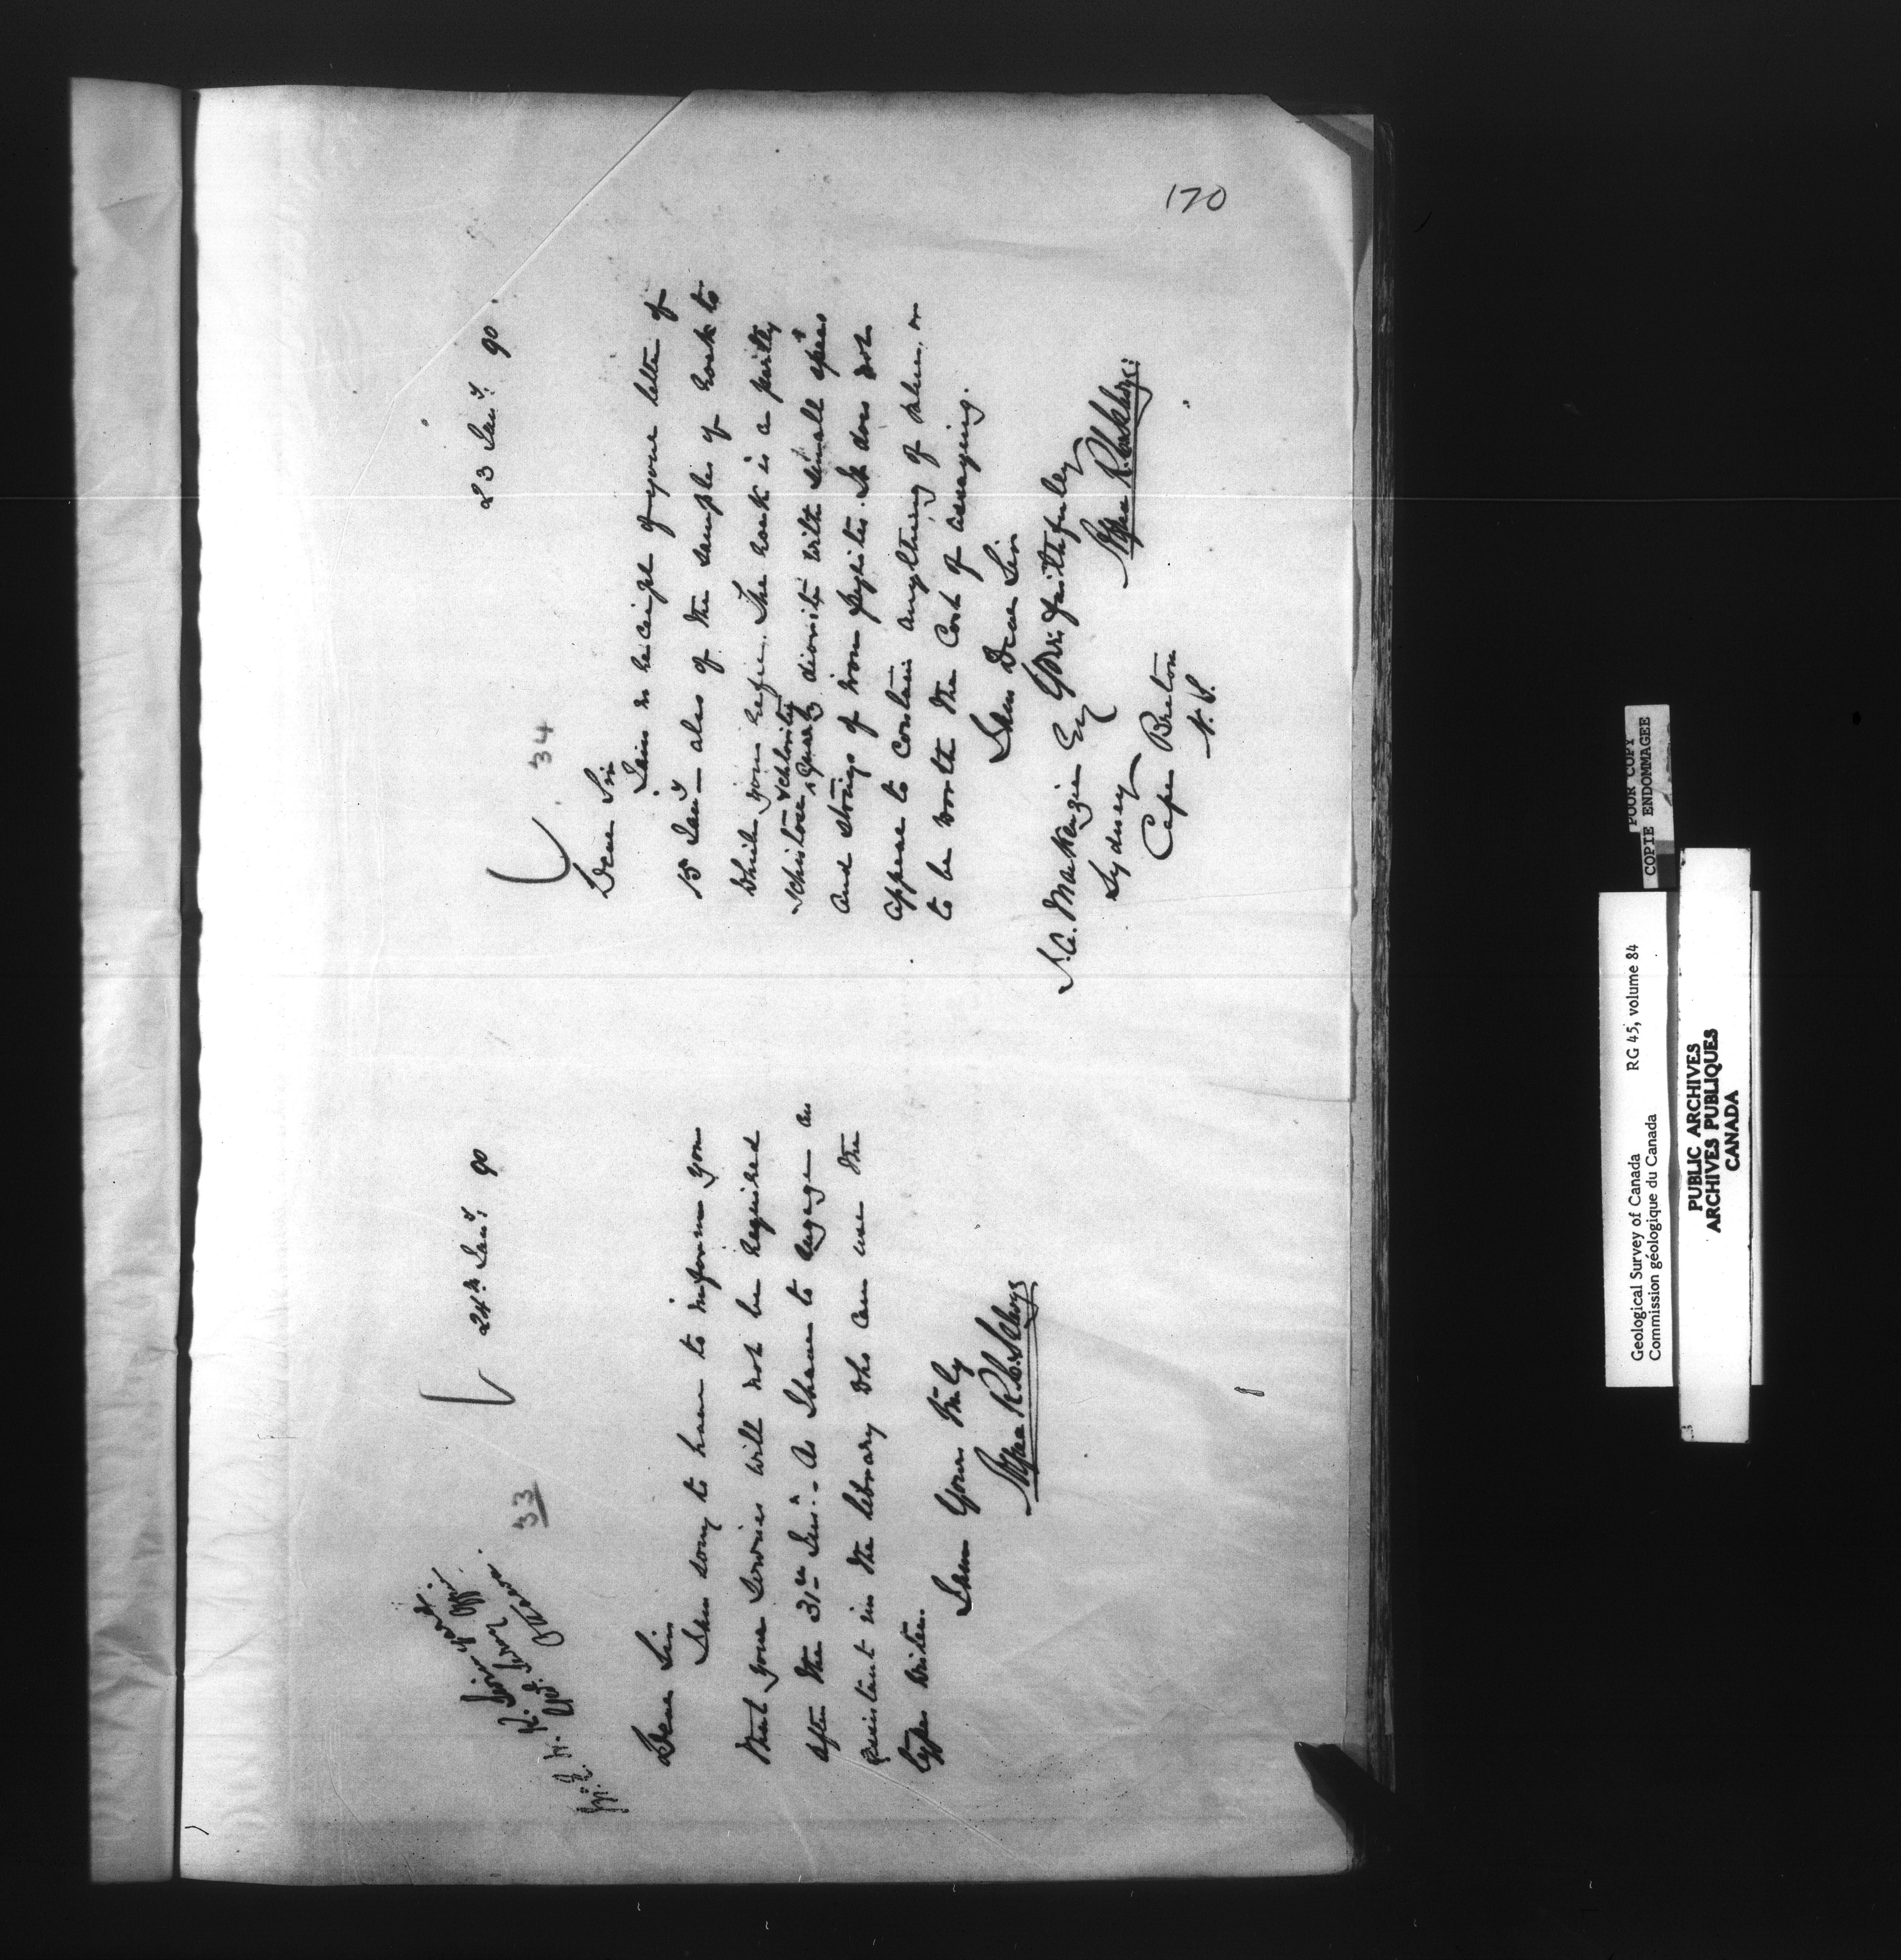 170
24th Jany. 90
33
Dear Sir
I am sorry to have to inform you
that your services will not be required
after the 31st Inst. - As I have to engage an
assistant in the library who can use the
type writer.
I am Yours truly
Alfred R. C. Selwyn
23 Jany. 90.
34
Dear Sir
I am in receipt of your letter of
15 Jany - also of the samples of rock to
which you refer. The rock is a partly
schistose & chloritic
quartz diorite with small specs
and strings of iron pyrites. It does not
appear to contain anything of value, or
to be worth the cost of assaying.
I am Dear Sir
Yours faithfully
Alfred R. C. Selwyn
A. C. MacKenzie Esq
Sydney
Cape Breton
N.S.
POOR COPY
COPIE ENDOMMAGEE
Geological Survey of Canada RG 45, volume 84
Commission géologique du Canada
PUBLIC ARCHIVES
ARCHIVES PUBLIQUES
CANADA